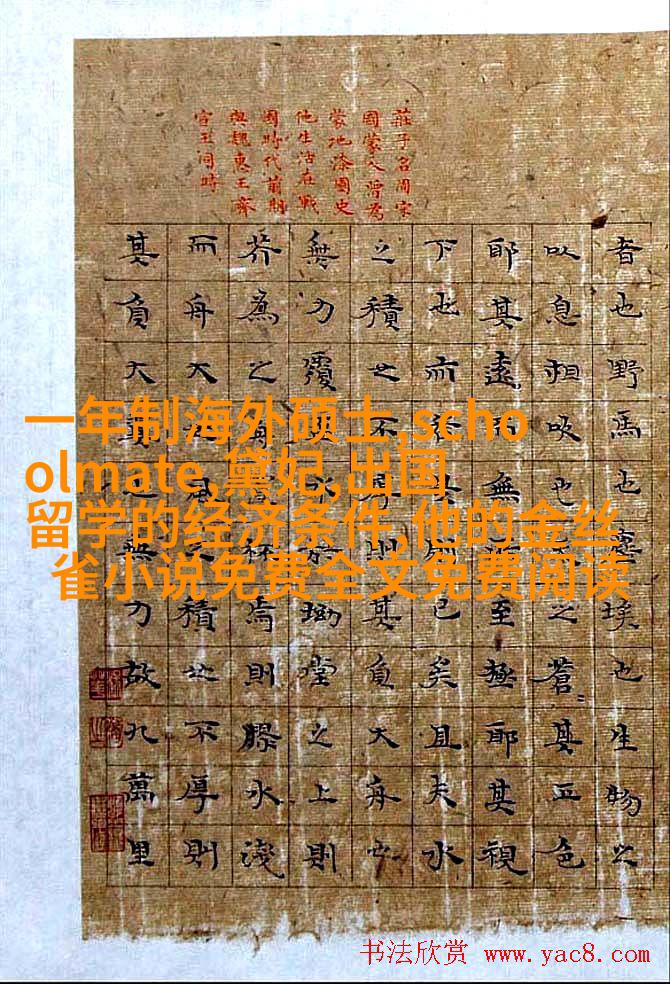 莊子名周宋
國蒙人曾為
蒙地漆園史
他生活在戰
國時代前期
與魏惠王齊
宣王同時
者也野馬也塵埃也生物之
以息相吹也天之蒼〻其正色
耶其遠而無所至極耶其視
下也而若是則已矣且夫水
之積也不厚則其負大舟也
無力覆杯水於坳堂之上則
芥為之舟置杯焉則膠水淺
而舟大也風之積也不厚則
其負大翼之無力故九萬里
一年制海外硕士,scho
olmate,黛妃,出国
留学的经济条件,他的金丝
雀小说免费全文免费阅读
书法欣赏 www.yac8.com